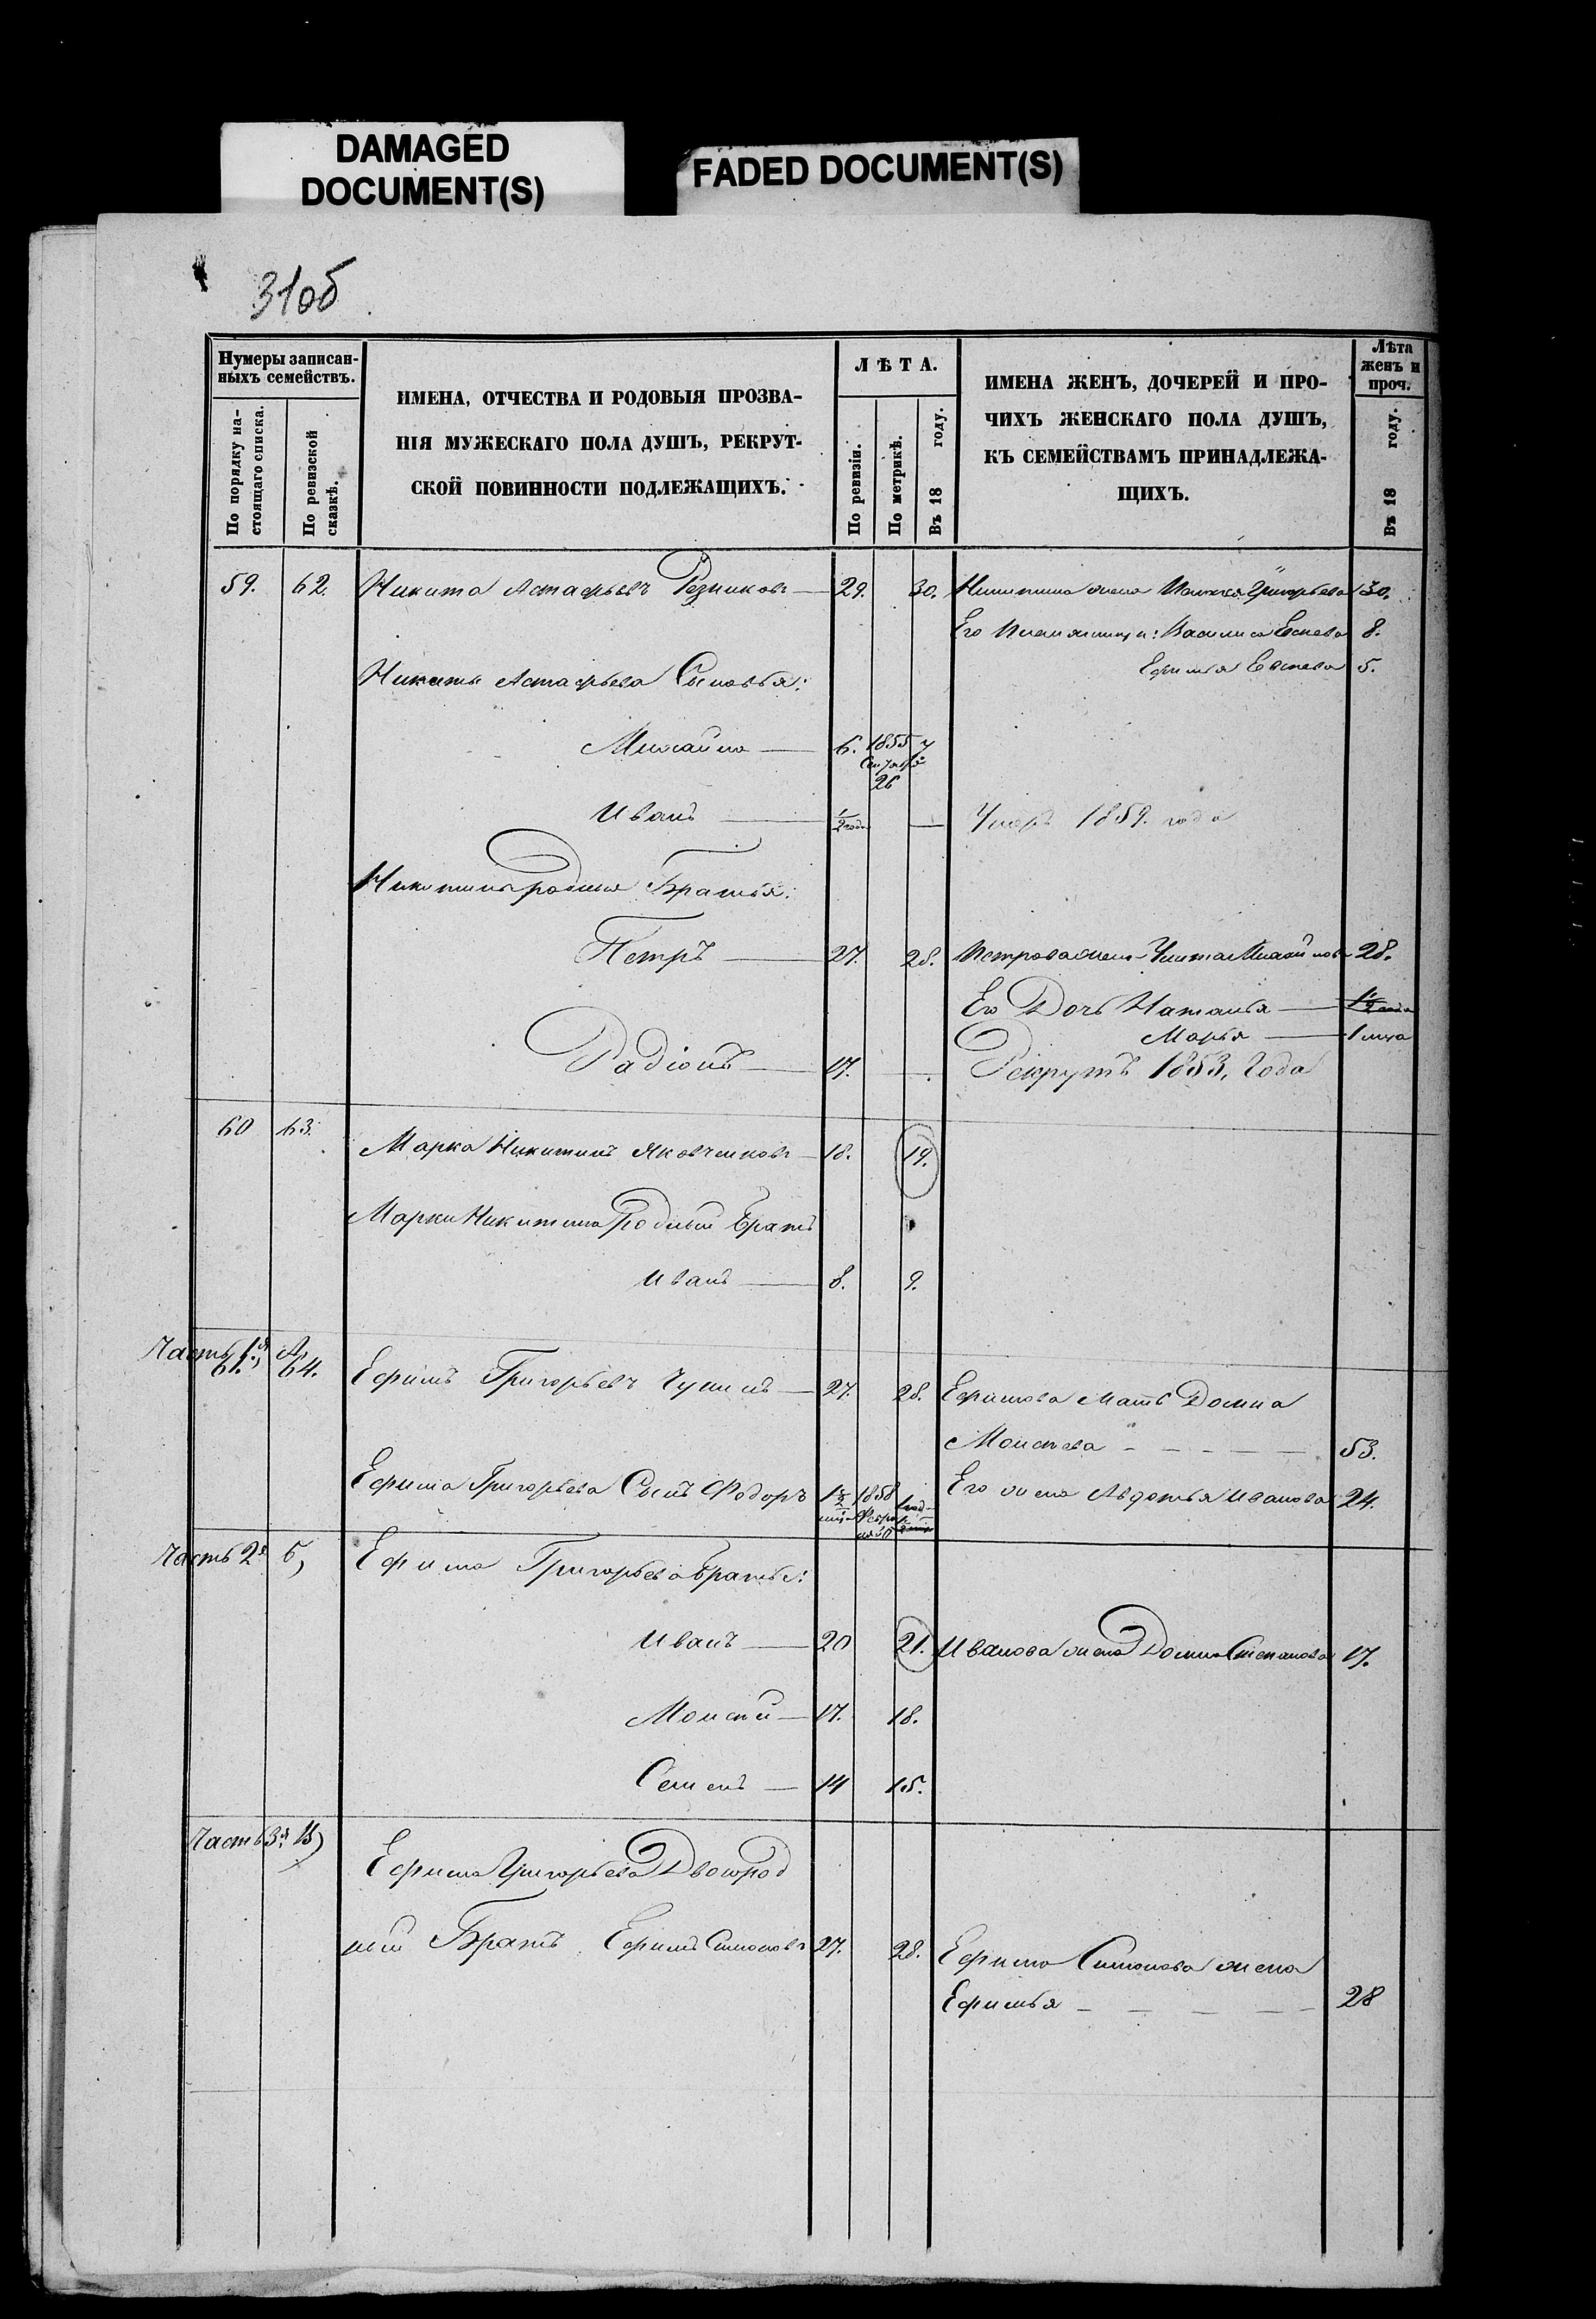 DAMAGED
DOCUMENT(S)
FADED DOCUMENT(S)
31об
Нумеры записан-
ныхъ семействъ.
По порядку на-
стоящаго списка.
По ревизской
сказкѣ.
ИМЕНА, ОТЧЕСТВА И РОДОВЫЯ ПРОЗВА-
НІЯ МУЖЕСКАГО ПОЛА ДУШЪ, РЕКРУТ-
СКОЙ ПОВИННОСТИ ПОДЛЕЖАЩИХЪ.
ЛѢТА.
По ревизіи.
По метрикѣ.
Въ 18 году.
ИМЕНА ЖЕНЪ, ДОЧЕРЕЙ И ПРО-
ЧИХЪ ЖЕНСКАГО ПОЛА ДУШЪ,
КЪ СЕМЕЙСТВАМЪ ПРИНАДЛЕЖА-
ЩИХЪ.
Лѣта
женъ и
проч.
Въ 18 году.
59. 62. Никита Астафьевъ Резниковъ 29. 30. Никитина жена Григорьева 30.
Его племянницы: Василиса Евсеева 8.
Ефимья Евсеева 5.
Никиты Астафьева Сыновья:
Михайло 6. 1855 7
Сентября
26
Иванъ 1/2 года — Умеръ 1859. года
Никитины родные Братья:
Петръ 27. 28. Петрова жена 28.
Его Дочь Наталья
Марья 1 мца
Радіонъ 17. — Рекрутъ 1853. Года
60 63. Марка Никитинъ Яковченковъ 18. 19.
Марки Никитина Родный Братъ
Иванъ 8. 9.
Часть 1я А,
61. 64. Ефимъ Григорьевъ Чупинъ 27. 28. Ефимова Мать Домна
Моисеева 53.
Ефима Григорьева Сынъ Федоръ 1858 Его жена Авдотья Иванова 24.
Часть 2я Б, Ефима Григорьева братья:
Иванъ 20 21. Иванова жена Домна Степанова 17.
Моисей 17. 18.
Семенъ 14 15.
Часть 3я В)
Ефима Григорьева Двоюрод
ный Братъ Ефимъ Симоновъ 27. 28. Ефима Симонова жена
Ефимья 28